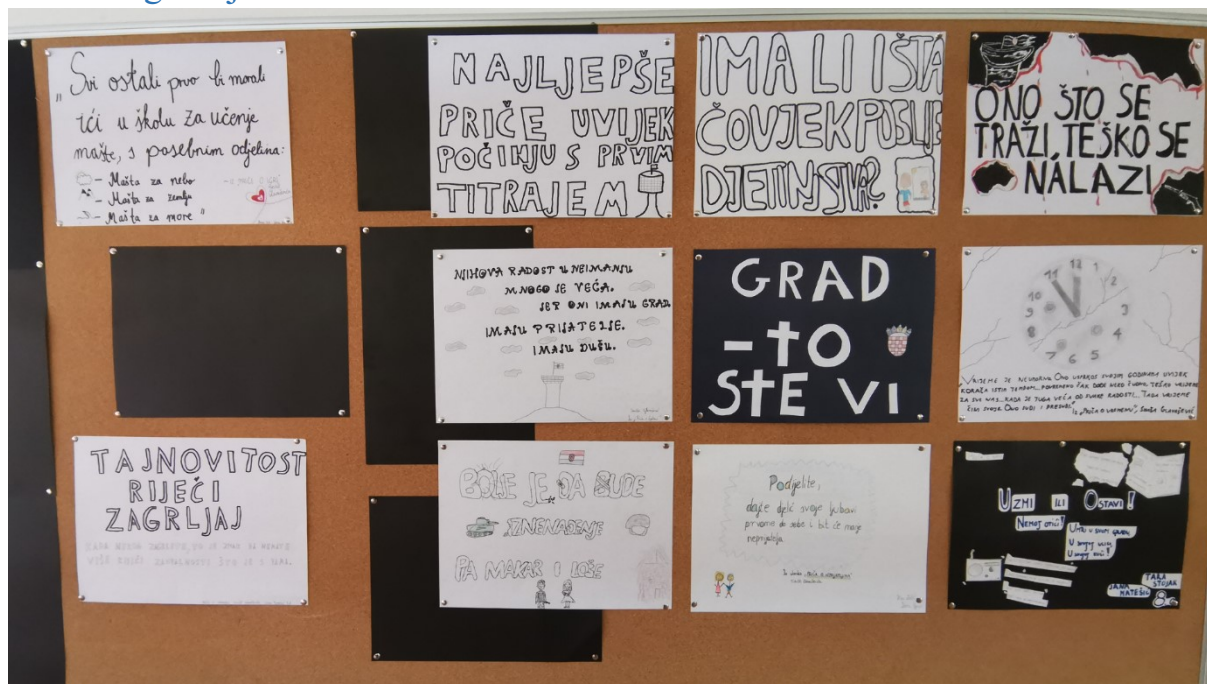 „Svi ostali prvo bi morali
ići u školu za učenje
mašte, s posebnim odjelima:
- Mašta za nebo
- Mašta za zemlju
- Mašta za more"
NAJLJEPŠE
PRIČE UVIJEK
POČINJU S PRVIM
TITRAJEM
IMA LI IŠTA
ČOVJEK POSLIJE
DJETINJSTVA?
ONO ŠTO SE
TRAŽI, TEŠKO SE
NALAZI
NJIHOVA RADOST U NEIMANJU
MNOGO JE VEĆA.
JER ONI IMAJU GRAD.
IMAJU PRIJATELJE.
IMAJU DUŠU.
GRAD
- TO
STE VI
12
1
2
3
4
5
6
7
8
9
10
11
„VRIJEME JE NEUMORNO. ONO USPRKOS SVOJIM GODINAMA UVIJEK
KORAČA ISTIM TEMPOM...
ZA SVE NAS... KADA JE TUGA VEĆA OD SUME RADOSTI... TADA VRIJEME
ČINI SVOJE. ONO SUDI I PRESUĐUJE"
IZ „PRIČA O VREMENU", SINIŠA GLAVAŠEVIĆ
TAJNOVITOST
RIJEČI
ZAGRLJAJ
BOLJE JE DA BUDE
IZNENAĐENJE
PA MAKAR I LOŠE
Podijelite,
dajte djelić svoje ljubavi
prvome do sebe i bit će manje
neprijatelja.
UZMI ILI OSTAVI!
NEMOJ OTIĆI!
U snovima
U snovi!
TARA
STOJAK
JANA
MATEŠIĆ
8.c